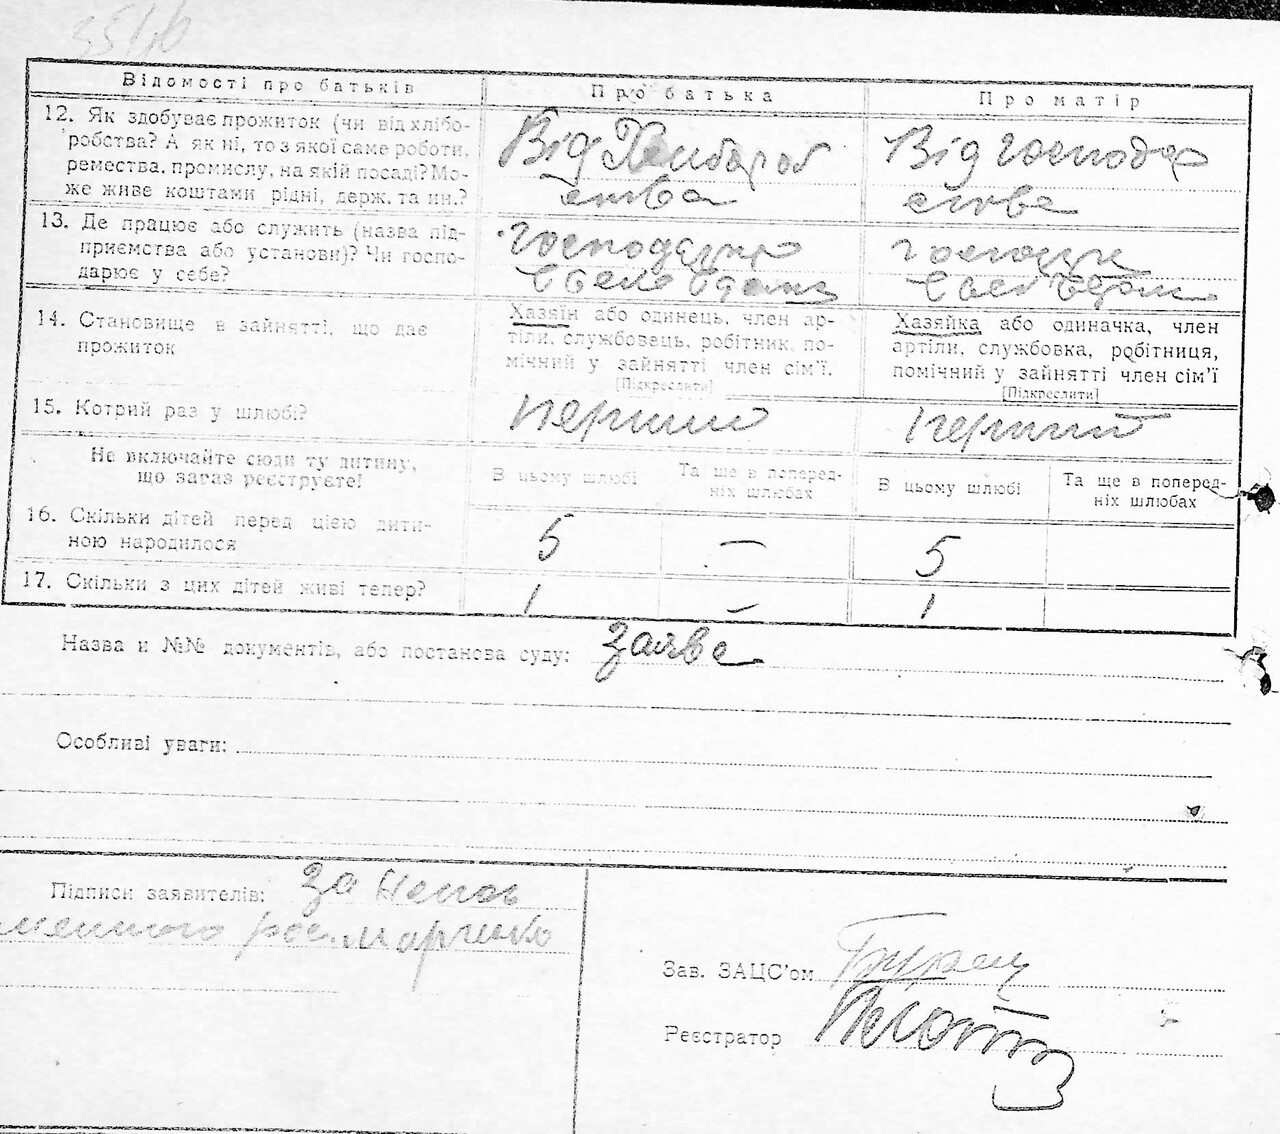 35
Відомості про батьків
Про батька
Про матір
12. Як здобуває прожиток (чи від хлібо-
робства? А як ні, то з якої саме роботи,
ремества, промислу, на якій посаді? Мо-
же живе коштами рідні, держ. та ин.?
Від
Від господар
ства
ства
13. Де працює або служить (назва під-
приємства або установи)? Чи госпо-
дарює у себе?
14. Становище в зайнятті, що дає
прожиток
Хазяїн або одинець, член ар-
тіли, службовець, робітник, по-
мічний у зайнятті член сім’ї.
[Підкреслити]
Хазяйка або одиначка, член
артіли, службовка, робітниця,
помічний у зайнятті член сім’ї
[Підкреслити]
15. Котрий раз у шлюбі?
перший
перший
Не включайте сюди ту дитину,
що зараз реєструєте!
В цьому шлюбі
Та ще в поперед-
ніх шлюбах
В цьому шлюбі
Та ще в поперед-
ніх шлюбах
16. Скільки дітей перед цією дити-
ною народилося
5
—
5
17. Скільки з цих дітей живі тепер?
1
—
1
Назва и №№ документів, або постанова суду: заява
Особливі уваги:
Підписи заявителів: За
рос. Марченко
Зав. ЗАЦС’ом
Реєстратор